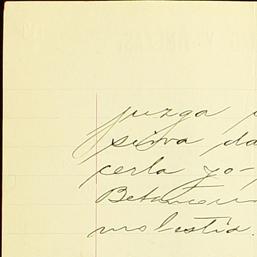 juzga
sirva da
cerla yo-
Betancou
molestia.